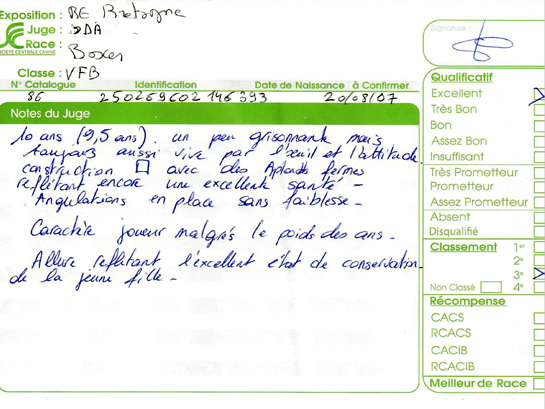 Exposition : RE Bretagne
Juge : DDA
SOCIETE CENTRALE CANINE
Race : Boxer
Classe : VFB
N° Catalogue Identification Date de Naissance à Confirmer
86 250269602146393 20/08/07
Notes du Juge
10 ans (9,5 ans). un peu grisonnante mais
toujours aussi vive par l'œuil et l'attitude
construction □ avec des Aplombs fermes
reflétant encore une excellente santé -
Angulations en place sans faiblesse -
Caractère joueur malgrés le poids des ans -
Allure reflétant l'excellent état de conservation
de la jeune fille -
Signature :
Qualificatif
Excellent
Très Bon
Bon
Assez Bon
Insuffisant
Très Prometteur
Prometteur
Assez Prometteur
Absent
Disqualifié
Classement 1er
2e
3e
Non Classé 4e
Récompense
CACS
RCACS
CACIB
RCACIB
Meilleur de Race